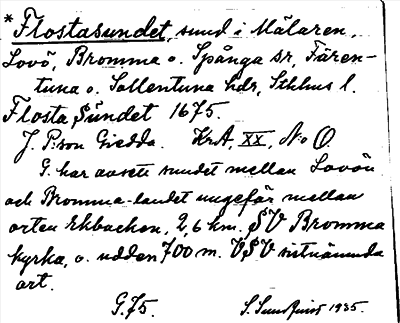 * Flostasundet, sund i Mälaren,
Lovö, Bromma o. Spånga sr, Fären-
tuna o. Sollentuna hdr, Sthlms l.
Flosta Sundet 1675.
J. P:son Giedda. KrA, XX, No O.
G. har avsett sundet mellan Lovön
och Bromma-landet ungefär mellan
orten Ekbacken, 2,6 km. SV Bromma
kyrka, o. udden 700 m. VSV sistnämnda
ort.
G. 75. S. Sundquist 1935.